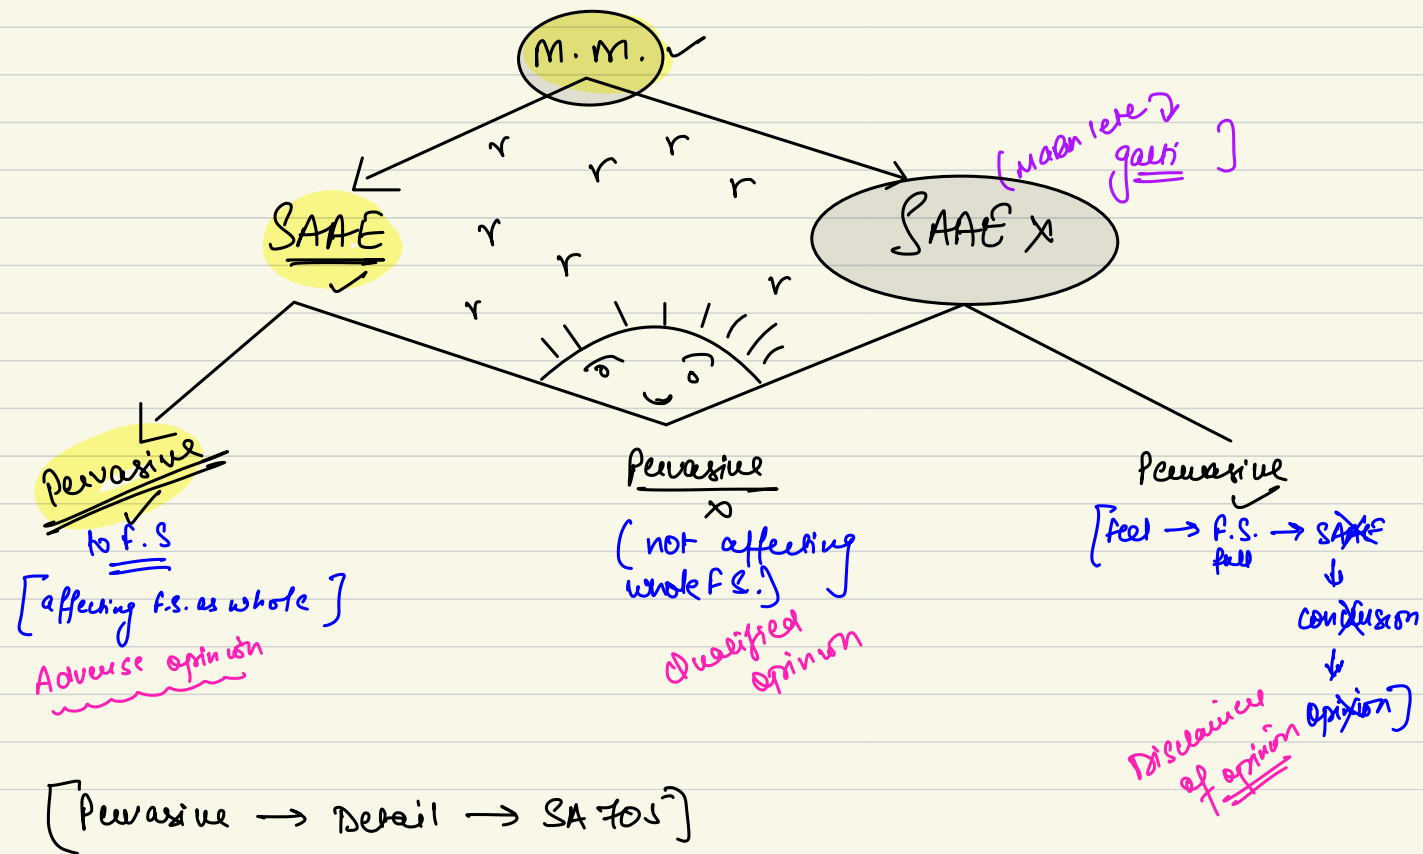 M.M.
r r r r
(Maan lete
galti ]
SAAE
SAAE X
r r r r
Pervasive
to F.S
[affecting F.S. as whole]
Adverse opinion
Pervasive
x
(not affecting
whole F S.)
Qualified
opinion
Pervasive
[feel → F.S. → SAAE
full
conclusion
opinion]
Disclaimer
of opinion
[Pervasive → Detail → SA 705]